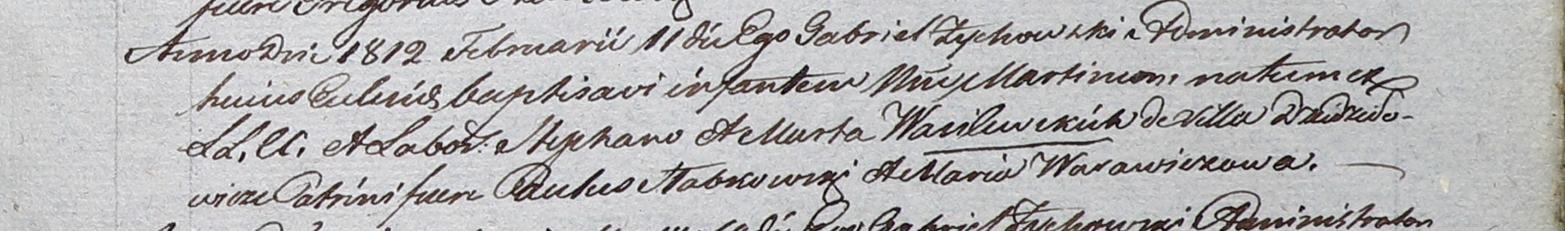 fuere Gregorius
Anno Dni 1812 Februarii 11 die Ego Gabriel Zychowski Administrator
huius Ecclesiæ baptisavi infantem Nne Martinum, natum ex
LL. CC. et Labor: Stephano et Marta Wasilewskich de Villa Dziedzilo-
wicze Patrini fuere Paulus Stabkowski et Maria Wasawiczowa.
Ego Gabriel Zychowski Administrator